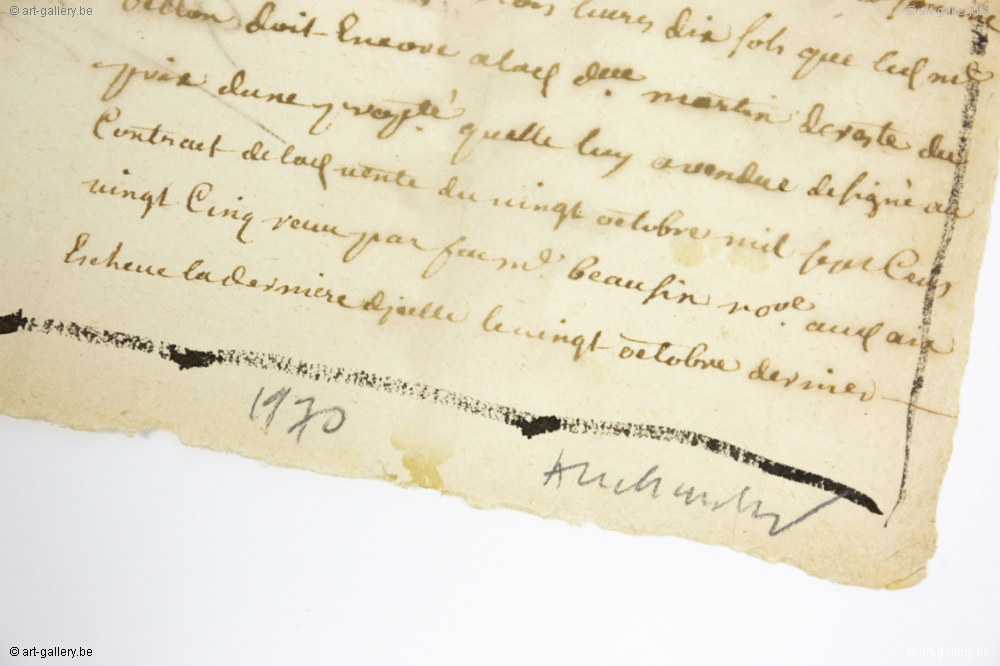 © art-gallery.be
© art-gallery.be
livres dix sols que
doit Encore a lad due martin de reste du
prix dune quelle luy avendue designé au
Contract de lad vente du vingt octobre mil sept Cens
vingt Cinq receu par beausin no.re aud aix
Escheue la derniere djcelle le vingt octobre dernier
1970
Alechinsky
© art-gallery.be
© art-gallery.be